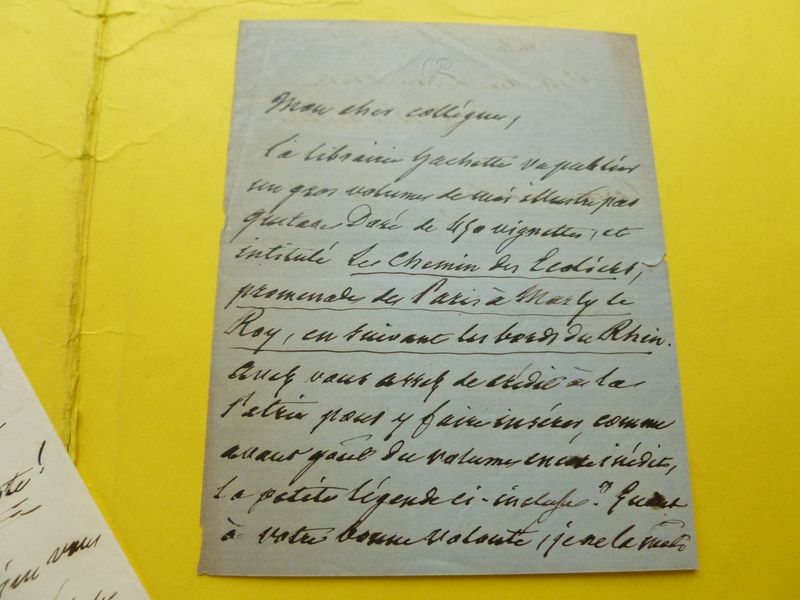 Mon cher collègue,
La librairie Hachette va publier
un gros volume de moi illustré par
Gustave Doré de 450 vignettes, et
intitulé Le Chemin des Ecoliers,
promenade de Paris à Marly le
Roy, en suivant les bords du Rhin.
Avez vous assez de crédit à la
Patrie pour y faire insérer, comme
avant goût du volume encore inédit,
la petite légende ci-incluse. Quant
à votre bonne volonté, je ne la
vous